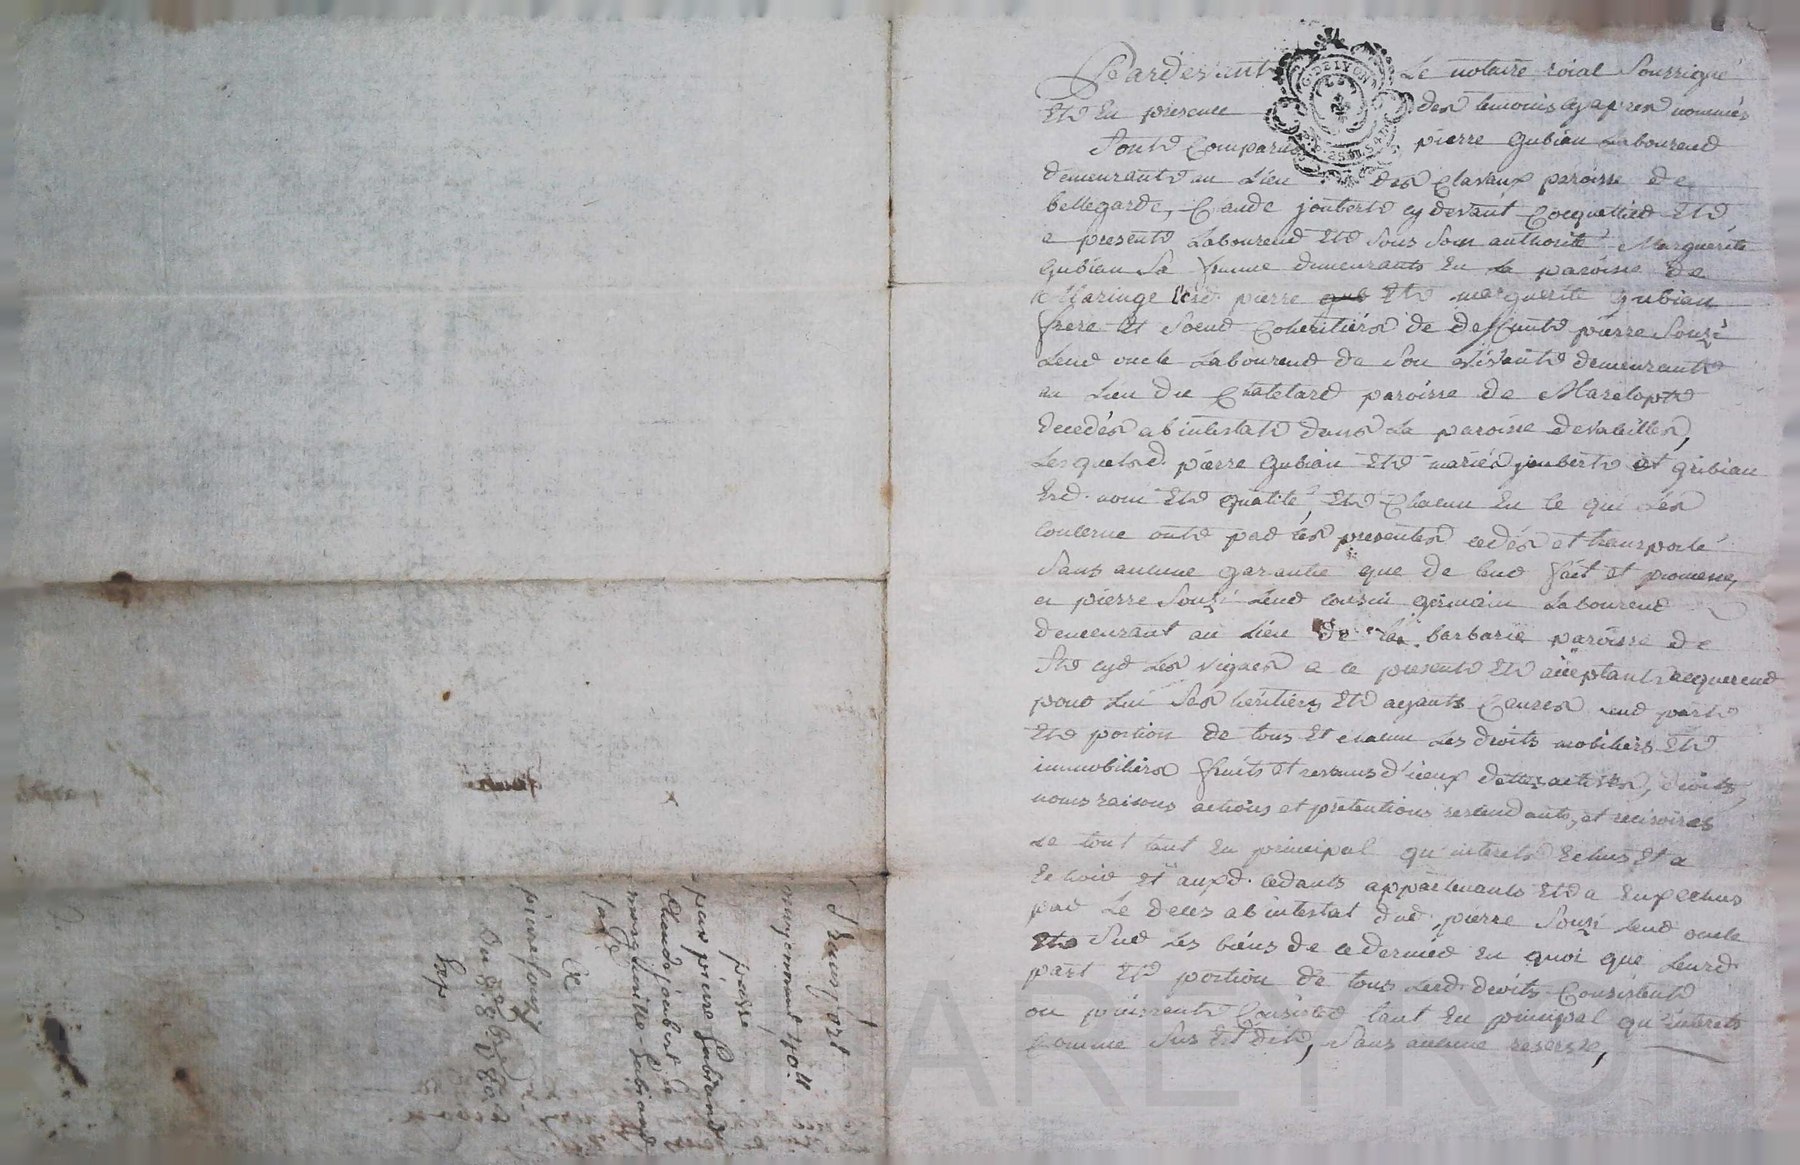 Pardevant Le notaire roial Soussigné
Et En presence des temoins cyapres nommés
Sont Comparus pierre Gubian Laboureur
demeurant au Lieu des Clavaux paroisse de
bellegarde, Claude joubert cydevant Cocquetier Et
a present Laboureur Et Sous Son authorité Marguerite
Gubian Sa femme demeurants En la paroisse de
Maringe Lesd. pierre Et marguerite Gubian
frere Et Soeur Coheritiers de deffunt pierre Souzi
Leur oncle Laboureur de Son vivant demeurant
au Lieu du Chatelard paroisse de Marclopt
decedés abintestat dans La paroisse devaleilles,
Lesquels d. pierre Gubian Et mariés joubert et gubian
Esd. nom Et qualité, Et Chacun En Ce qui Les
Concerne ont par les presentes cedés et transporté
Sans aucune garantie que de leur fait et promesse,
a pierre Souzi Leur cousin germain Laboureur
demeurant au Lieu de la barbarie paroisse de
St cyr Les vignes a ce present Et acceptant acquereur
pour Lui Ses heritiers Et ayants Causes Leur part
Et portion de tous Et chacun Les droits mobiliers Et
immobiliers fruits et revenus d'iceux dettes actives, droits,
noms raisons actions et pretentions rescindants, et recisoires
Le tout tant En principal qu'interets Echus Et a
Echoir Et auxd. cedants appartenants Et a Eux echus
par Le deces abintestat dud. pierre Souzi Leur oncle
Et Sur Les biens de ce dernier En quoi que Leurd.
part Et portion de tous Lesd. droits Consistent
ou puissent Consister tant En principal qu'interets
Comme Sus Est dit, Sans aucune reserve,
G. DE LYON
Transport
moyennant 40ll
passé
par pierre Gubiand
Claude joubert Et
marguerite Gubiand
a
pierre Souzy
HAREYRON